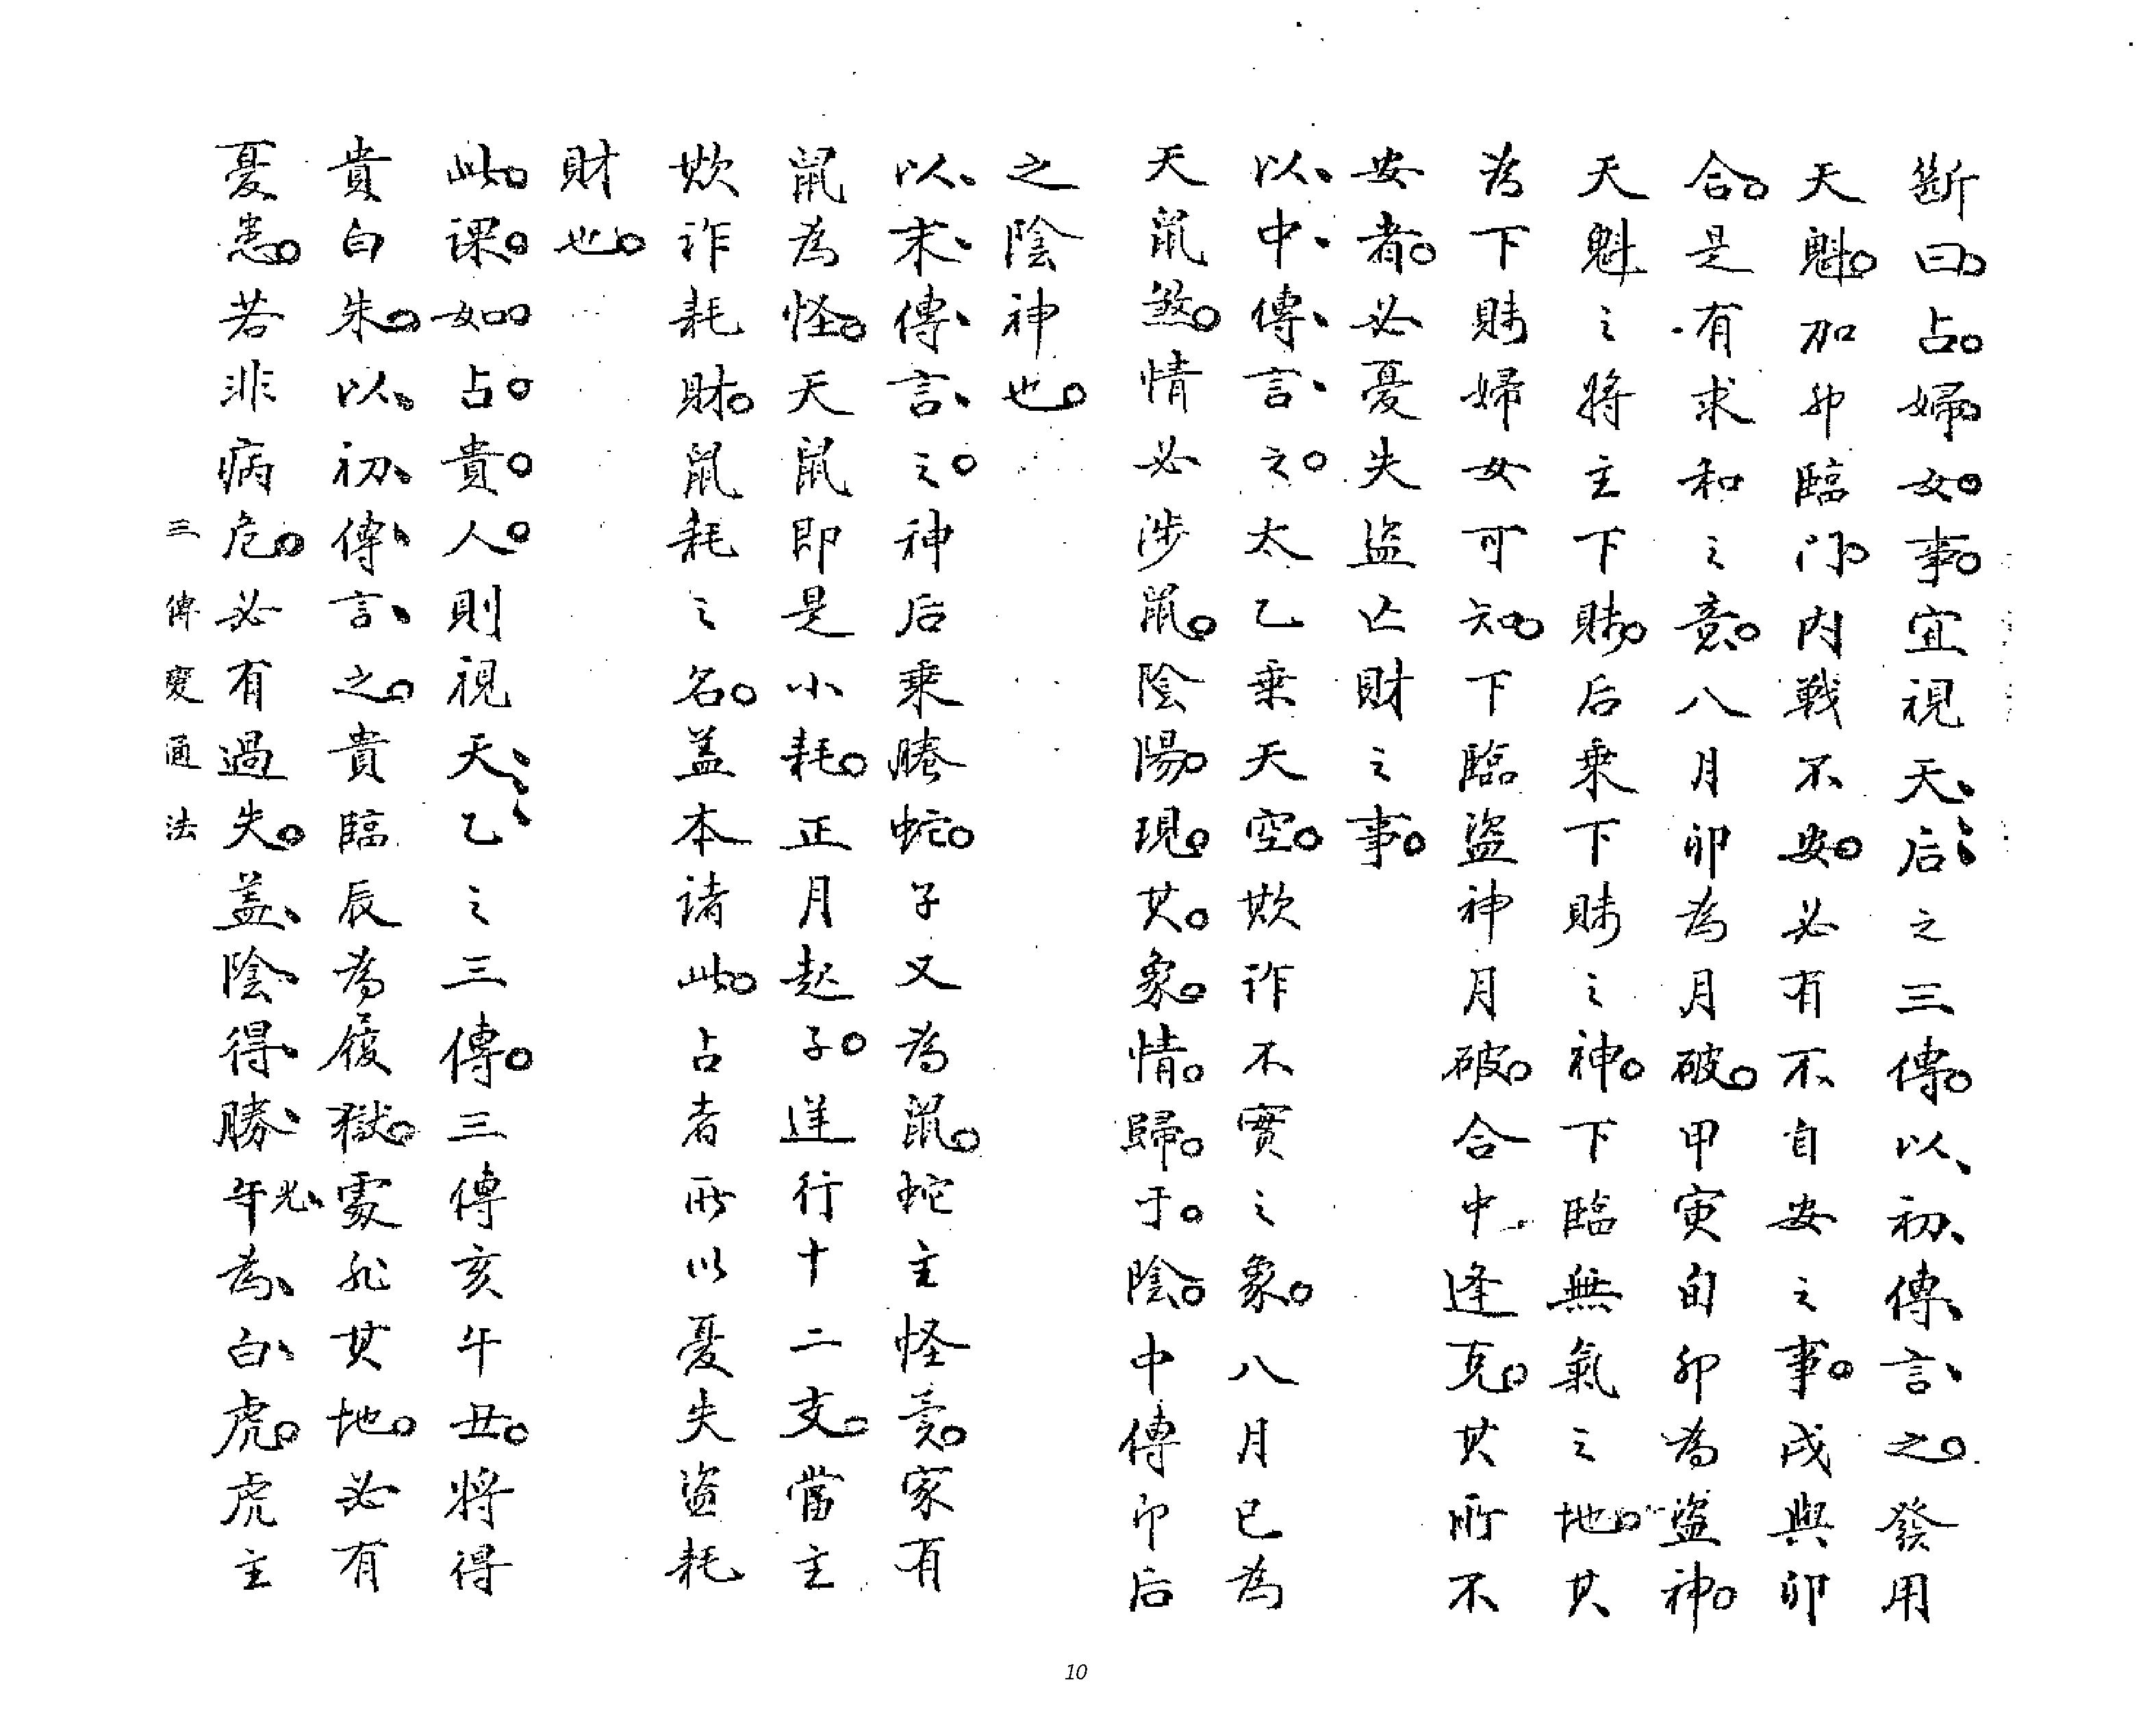 斷曰占婦女事宜視天后之三傳以初傳言之發用
天魁加卯臨門內戰不安必有不自安之事戌與卯
合是有求和之意八月卯為月破甲寅旬卯為盜神
天魁之將主下賊后乘下賊之神下臨無氣之地其
為下賊婦女可知下臨盜神月破合中逢克其所不
安者必憂失盜亡財之事
以中傳言之太乙乘天空欺詐不實之象八月巳為
天鼠煞情必涉鼠陰陽現其象情歸于陰中傳即后
之陰神也
以末傳言之神后乘螣蛇子又為鼠蛇主怪異家有
鼠為怪天鼠即是小耗正月起子逆行十二支當主
欺詐耗財鼠耗之名蓋本諸此占者所以憂失盜耗
財也
此課如占貴人則視天乙之三傳三傳亥午丑將得
貴白朱以初傳言之貴臨辰為履獄處非其地必有
憂患若非病危必有過失蓋陰得勝光午為白虎虎主
三傳變通法
10